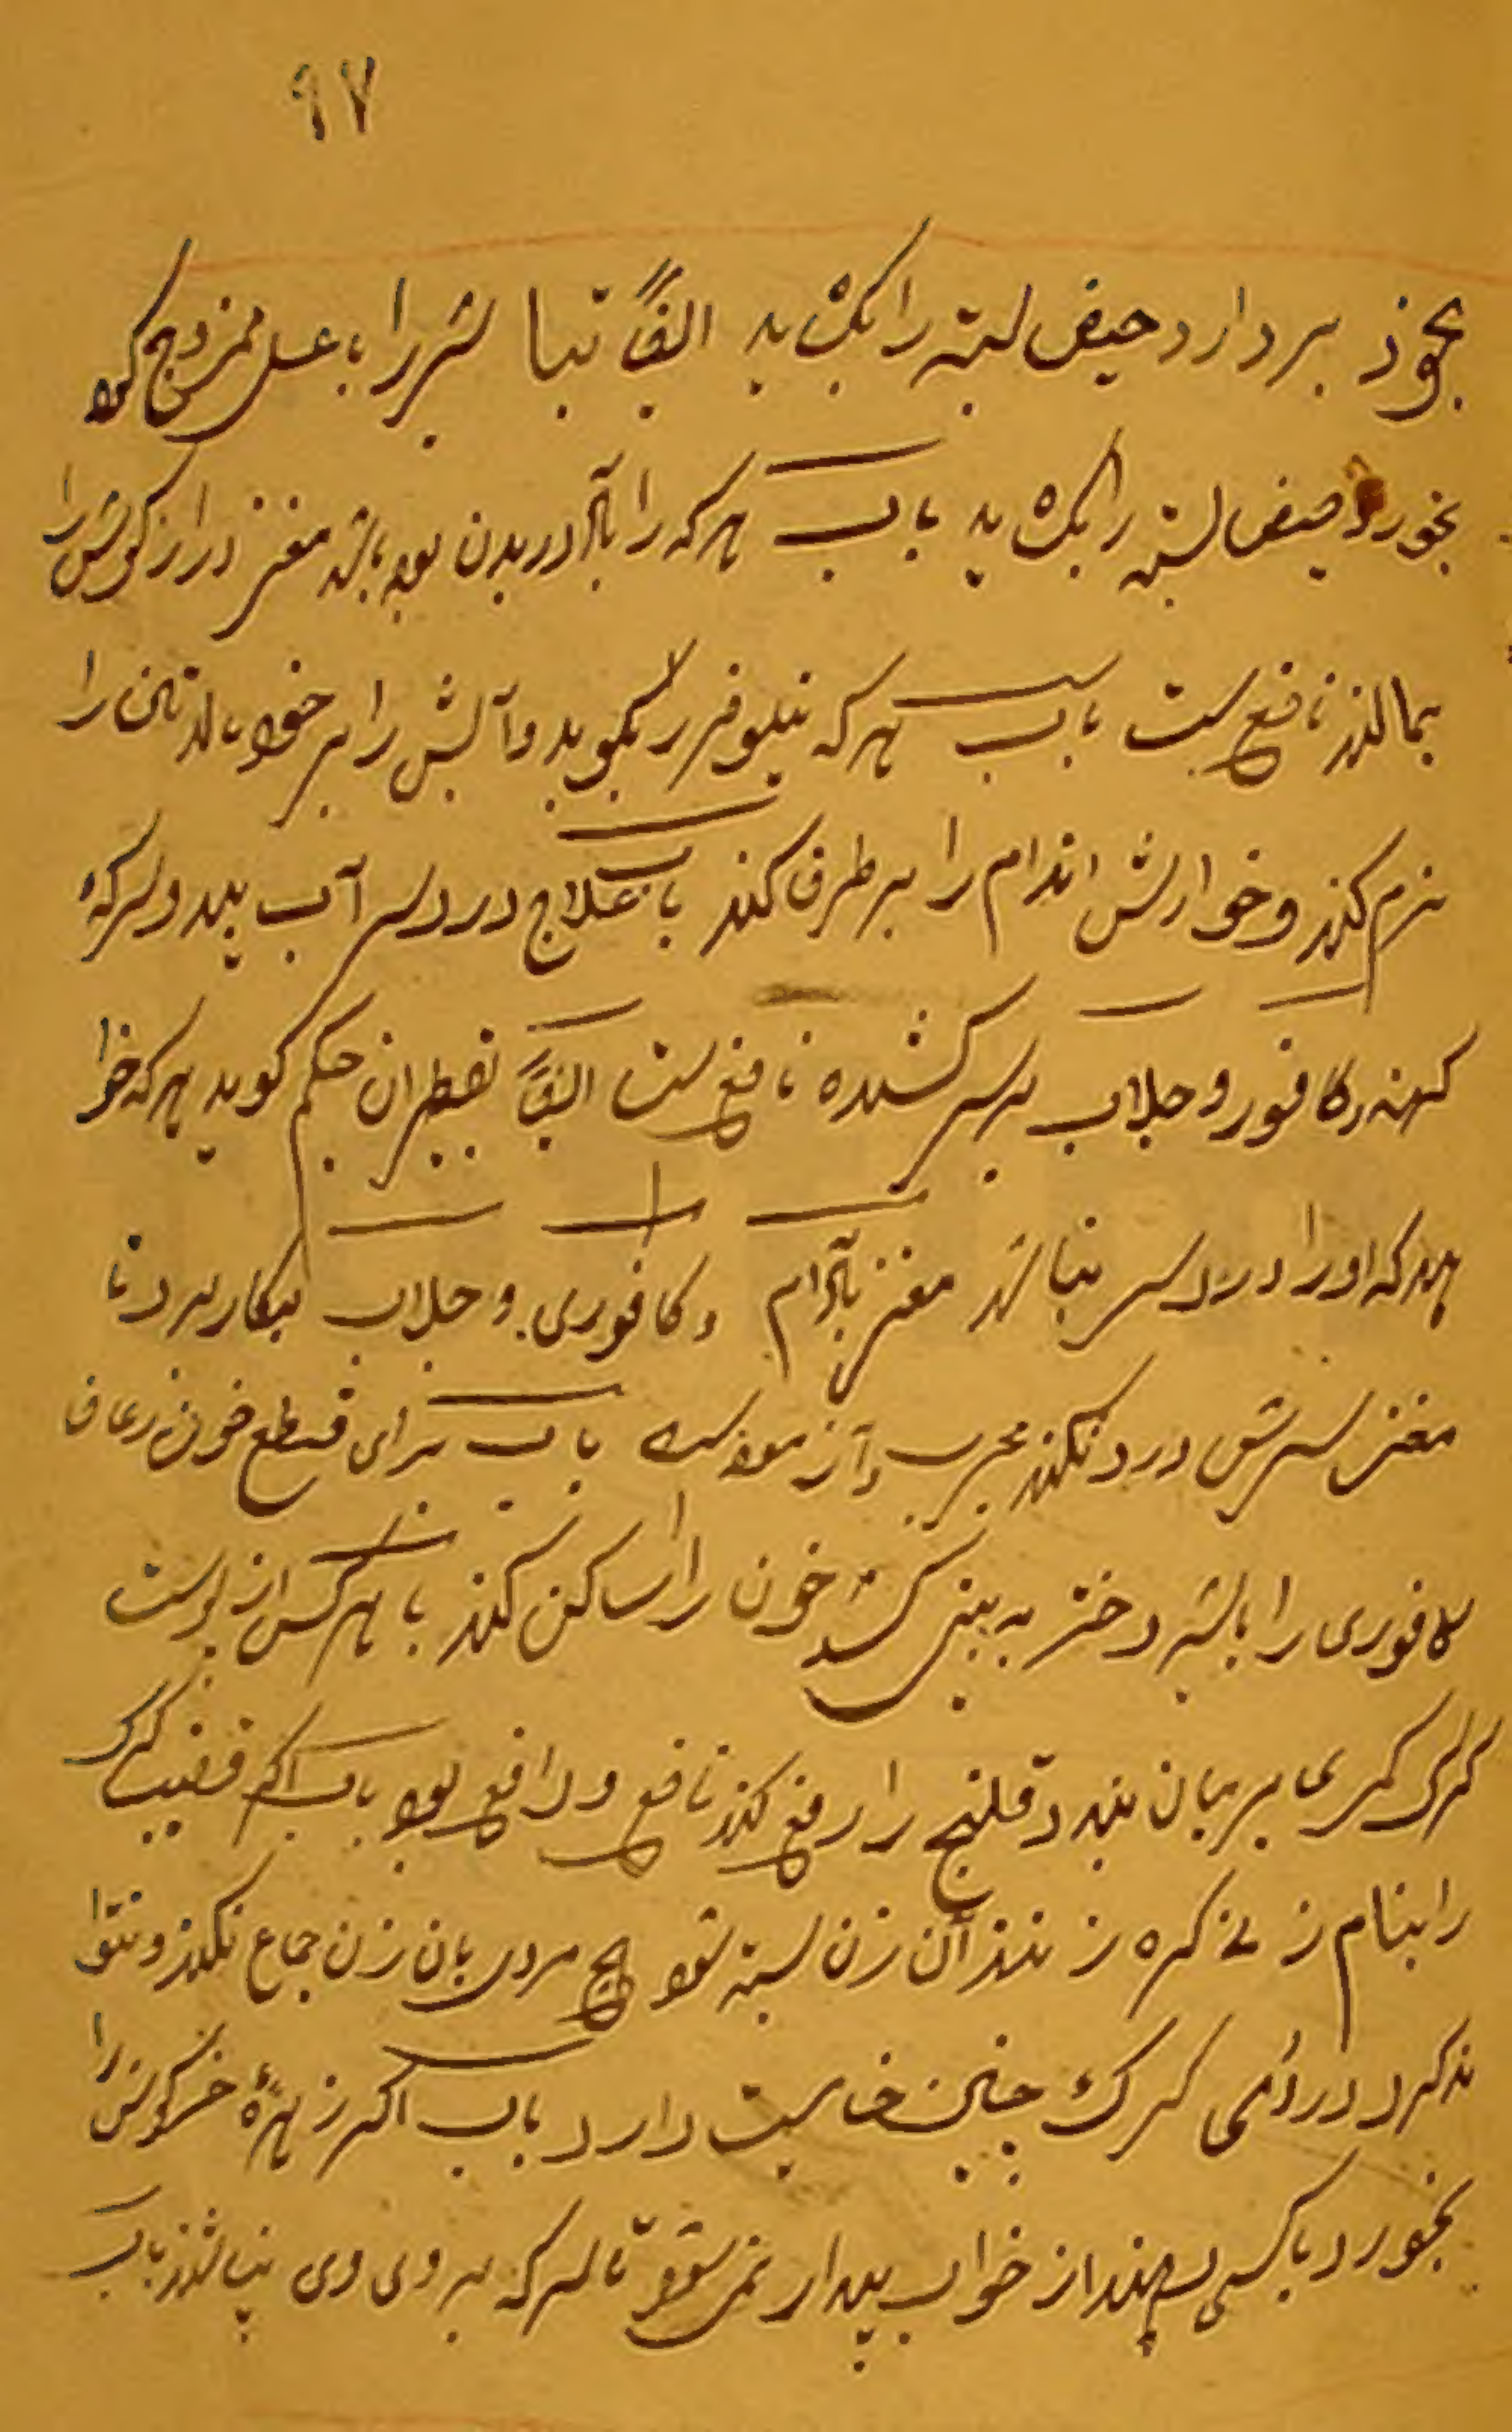 ٩٧
بخود بردارد حیض بسته را بکشاید ایضاً تباشیر را با عسل ممزوج کرده
بخورد حیض بسته را بکشاید باب هر که را در بدن بود باشد مغز درازکوش را
بمالند نافع ست باب هر که نیلوفر را بکوبد و آبش را بر خود بمالد تن را
نرم کند و خوارش اندام را برطرف کند باب علاج درد سر آب بید و سرکه
کهنه و کافور و جلاب بر سر کشیده نافع ست ایضاً حکیم کوید هر که خوا
هد که او را درد سر نباشد مغز بادام و کافوری و جلاب بکار برد تا
مغز سرش درد نکند مجرب و آزموده است باب برای قطع خون رعاف
کافوری را بشیر دختر به بینی کشد خون را ساکن کند باب هر کس از پوست
کرک کمری بر میان بندد قلنج را رفع کند نافع و دافع بود باب اکر قضیب کرک
را بنام زنی کره زنند آن زن بسته شود هیچ مردی بان زن جماع نکند و نتوا
ند کرد در دمی کرک چنین خاصیت دارد باب اکر زهرهٔ خرکوش را
بخورد با کسی دهند از خواب بیدار نمی شود تا سرکه بر وی وی نپاشند باب